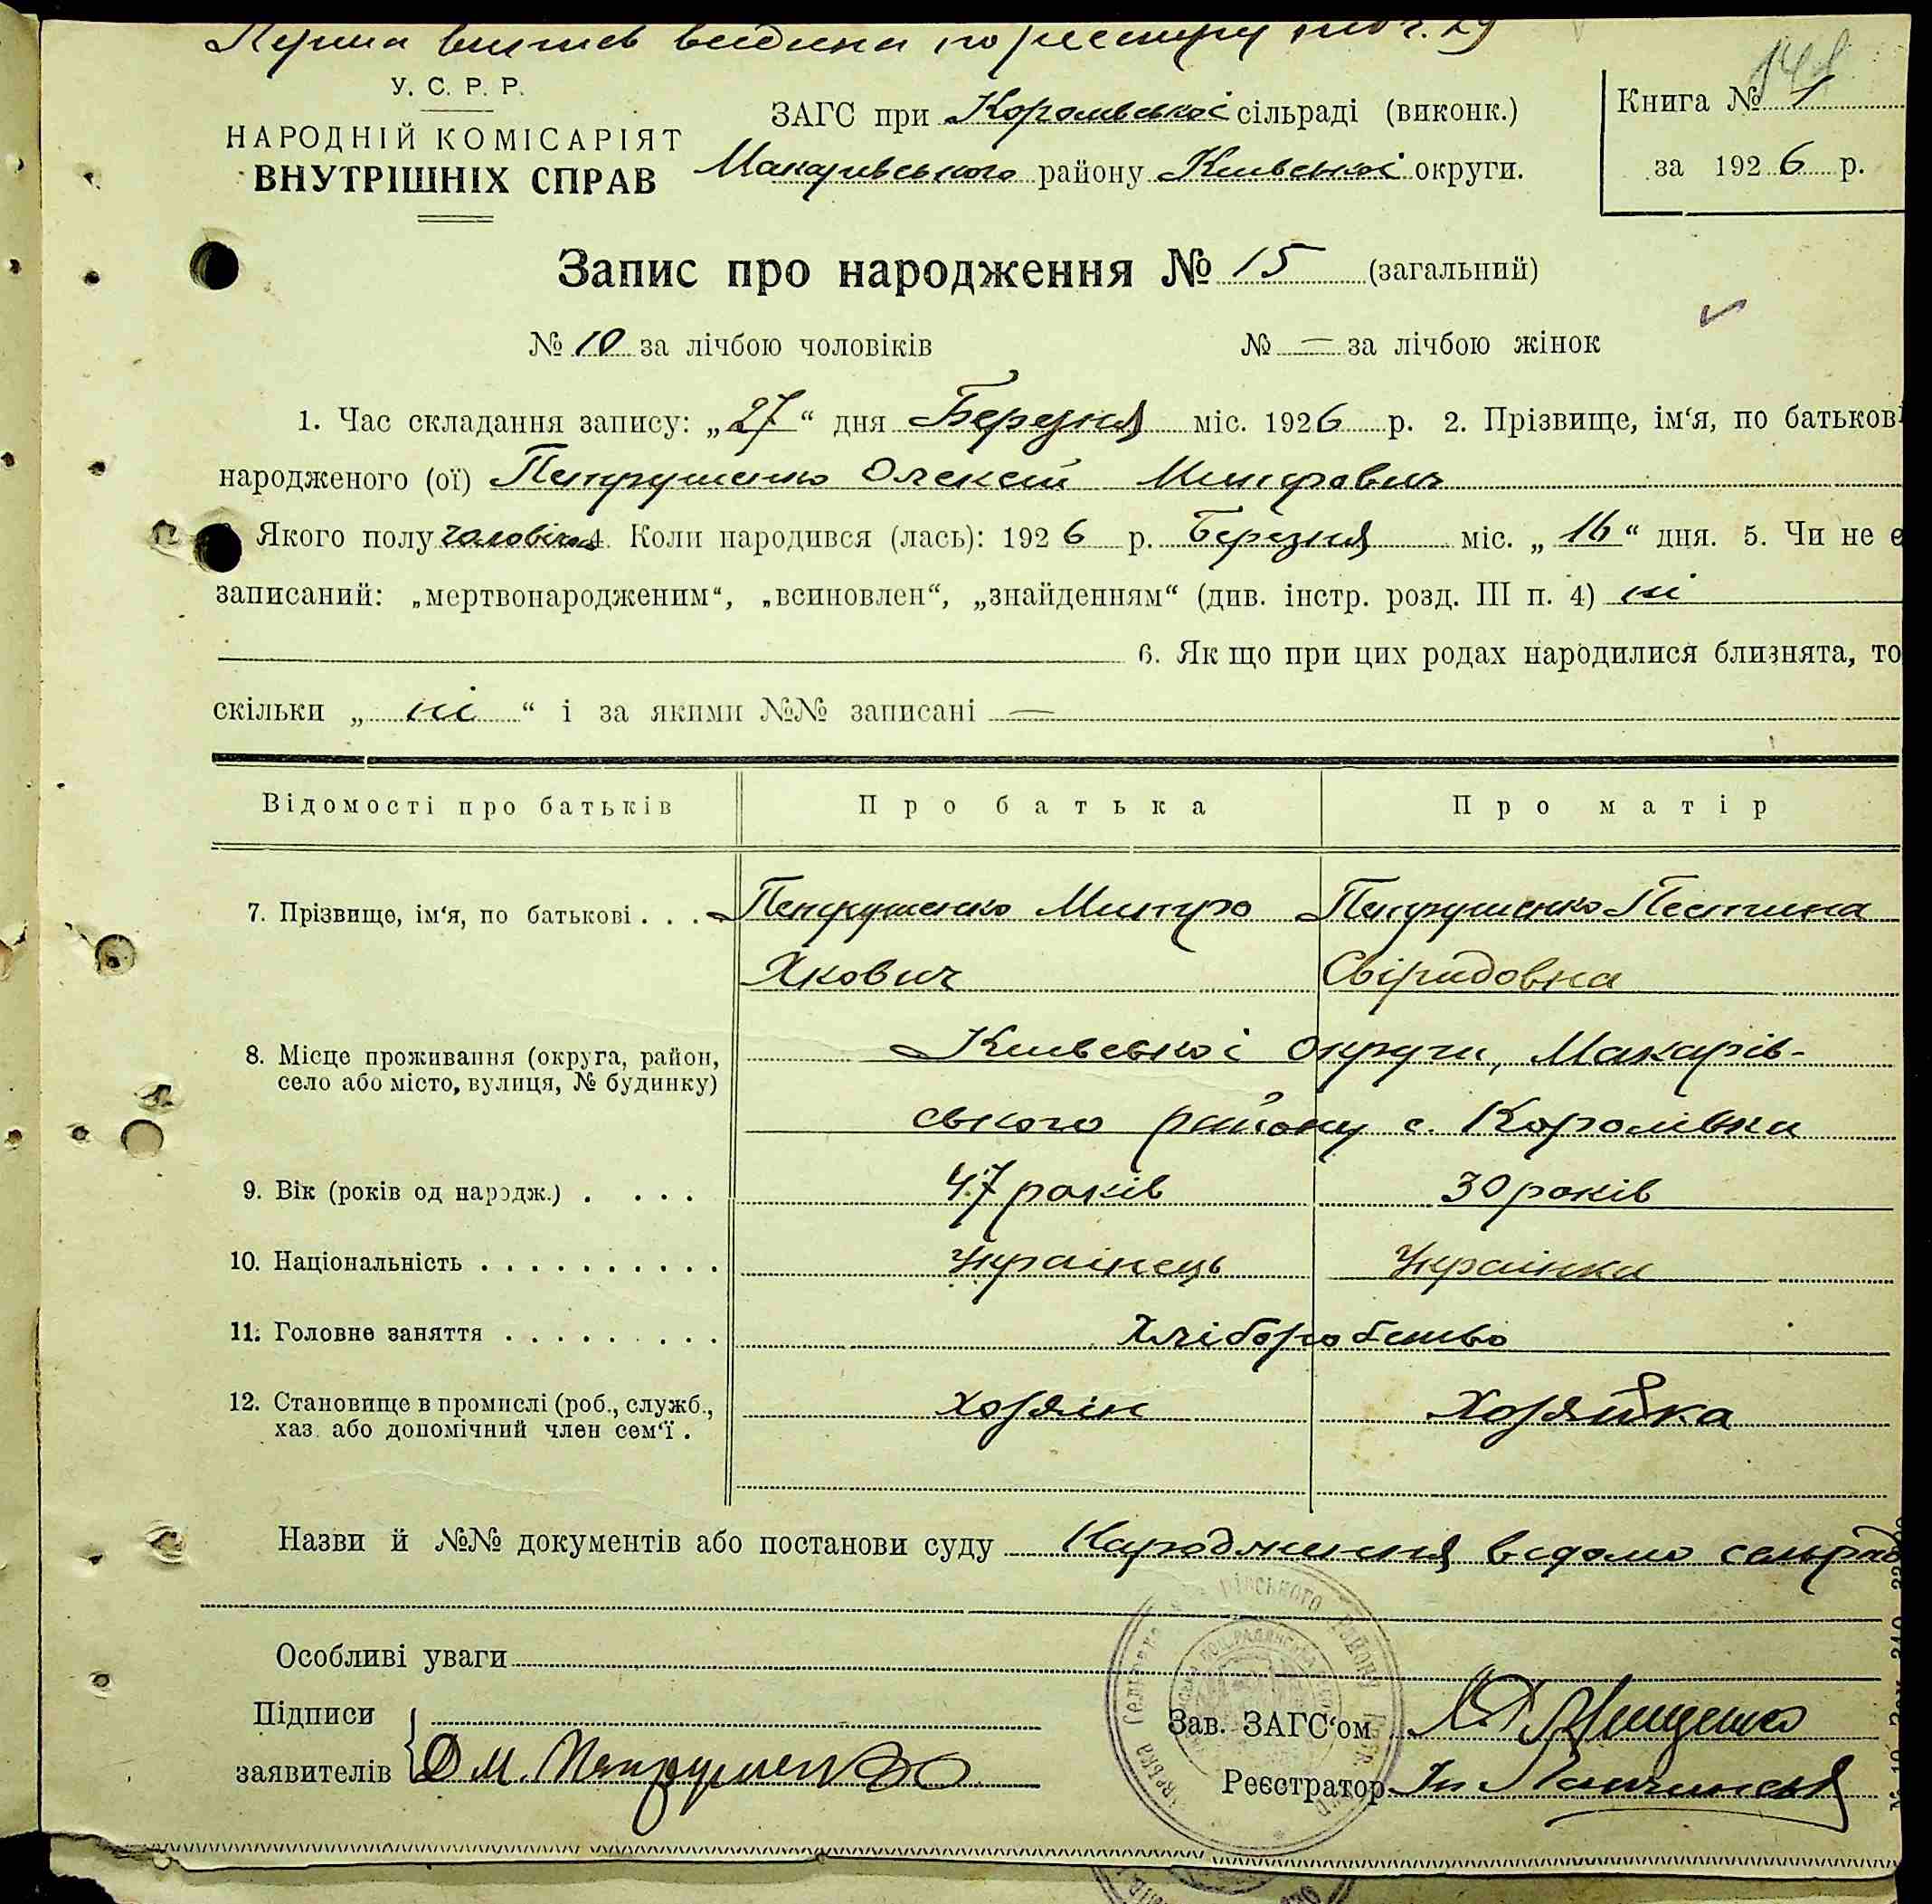 У. С. Р. Р.
НАРОДНІЙ КОМІСАРІЯТ
ВНУТРІШНІХ СПРАВ
ЗАГС при Королівської сільраді (виконк.)
Макарівського району Київської округи.
Книга № 1
за 1926 р.
Запис про народження № 15 (загальний)
№ 10 за лічбою чоловіків № — за лічбою жінок
1. Час складання запису: „27“ дня Березня міс. 1926 р. 2. Прізвище, ім‘я, по батькові
народженого (ої) Петрушенко Олексій Митрович
Якого полу чоловічого 4. Коли народився (лась): 1926 р. Березня міс. „16“ дня. 5. Чи не є
записаний: „мертвонародженим“, „всиновлен“, „знайденням“ (див. інстр. розд. III п. 4) ні
6. Як що при цих родах народилися близнята, то
скільки „ні“ і за якими №№ записані —
Відомості про батьків Про батька Про матір
7. Прізвище, ім‘я, по батькові . . . Петрушенко Митро Петрушенко Пестина
Якович Свіридовна
8. Місце проживання (округа, район, Київської округи, Макарів-
село або місто, вулиця, № будинку)
ського району с. Королівка
9. Вік (років од народж.) . . . . 47 років 30 років
10. Національність . . . . . . . . . . Українець Українка
11. Головне заняття . . . . . . . . . Хліборобство
12. Становище в промислі (роб., служб., хозяін хозяйка
хаз. або допомічний член сем‘ї .
Назви й №№ документів або постанови суду Народження ведомо сельраде
Особливі уваги
Підписи
заявителів Д М. Петрушенко
Зав. ЗАГС‘ом
Реєстратор